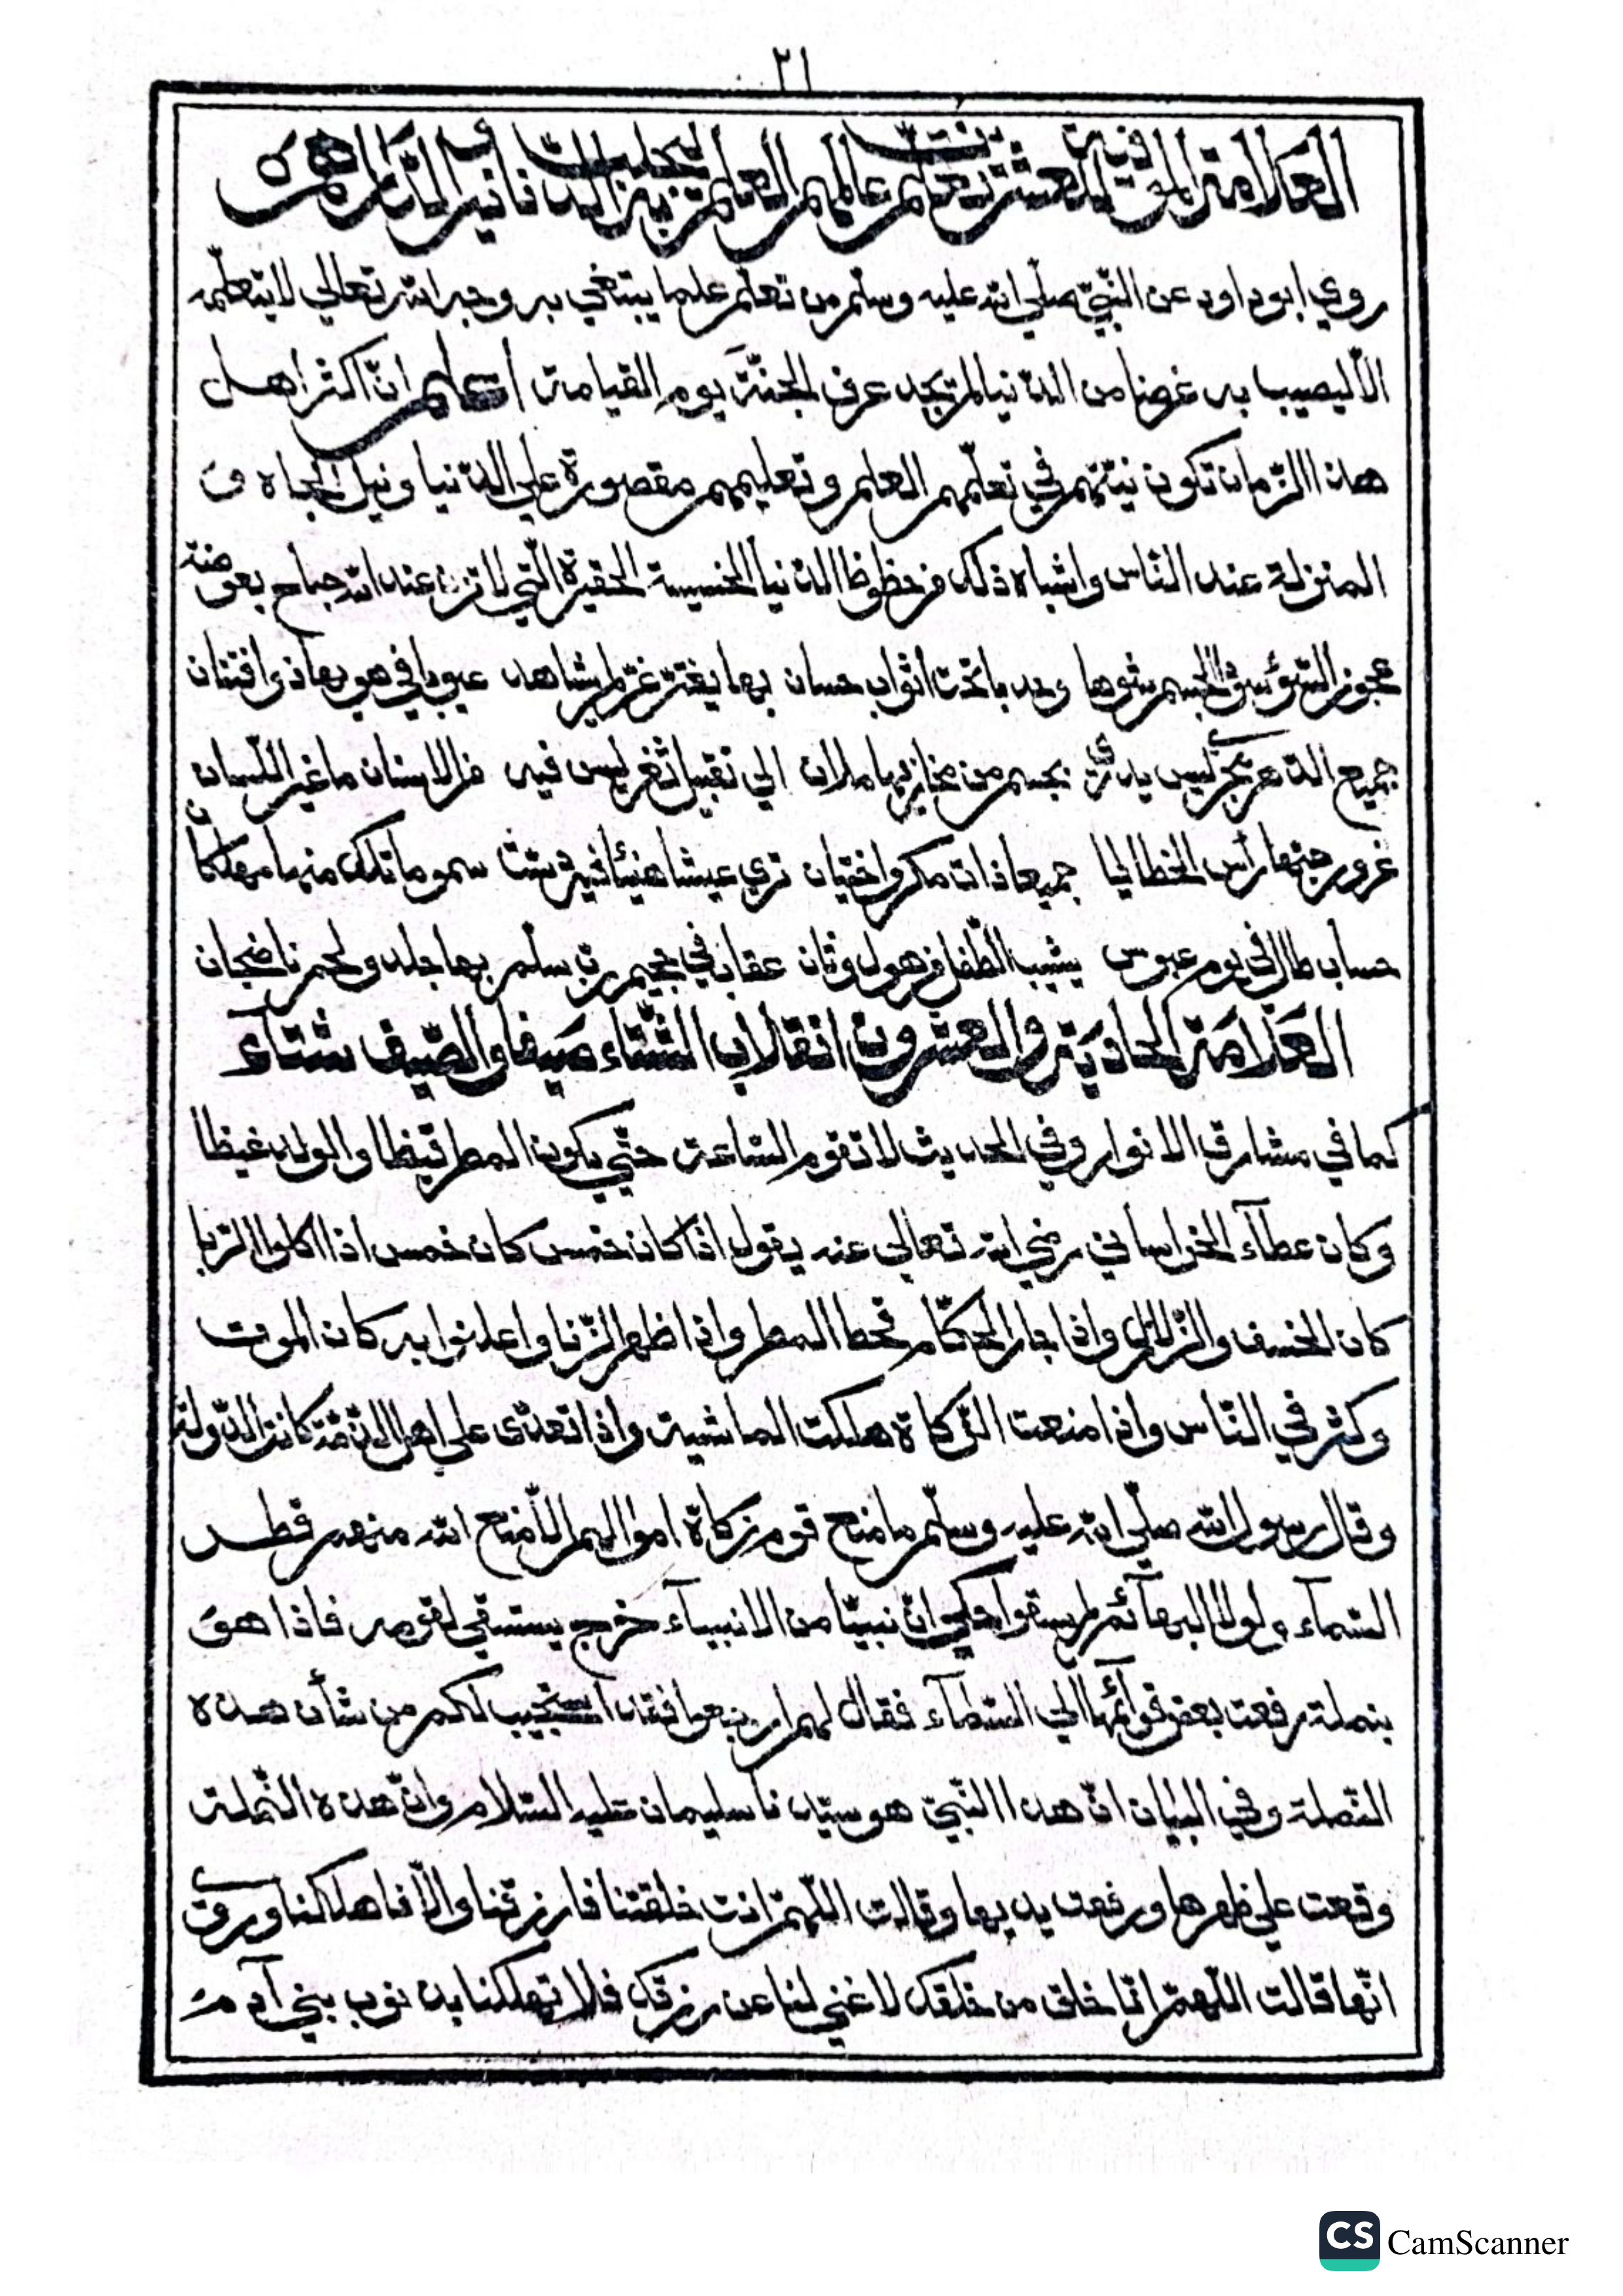 ٢١
العلامة الموفية العشرين تعلم عالمهم العلم لجلب الدنانير والدراهم
روي ابو داود عن النبيّ صلّي الله عليه وسلّم من تعلّم علما يبتغي به وجه الله تعالي لا يتعلّمه
الاّ ليصيب به غرضا من الدّنيا لم تجد عرف الجنّة يوم القيامة اعلم انّ اكثر اهل
هذا الزّمان تكون نيّتهم في تعلّمهم العلم وتعليمهم مقصورة علي الدّنيا ونيل الجاه و
المنزلة عند النّاس واشباه ذلك من حظوظ الدّنيا الخسيسة الحقيرة الّتي لا تزن عند الله جناح بعوضة
عجوز السّوء الجسم شوها تحت اثواب حسان بها يغترّ غرّ لم يشاهد عيوبا في هويها ذو افتتان
جميع الدّهر ليس بجسم من مخازيها ملان الي تقبيل ثغر ليس فيه من الاسنان ما غير اللّسان
غرور حبّها رأس الخطايا جميعا ذات مكر واختيان تري عيشا هنيئا سموما تلك منها مهلكان
حساب طال في يوم عبوس يشيب الطّفل من هول وثان عقاب في جحيم بها جلد ولحم ناضجان
العلامة الحادية والعشرون انقلاب الشّتاء صيفا والصّيف شتآء
كما في مشارق الانوار وفي الحديث لا تقوم السّاعة حتّي يكون المطر قيظا والولد غيظا
وكان عطآء الخراساني رضي الله تعالي عنه يقول اذا كان خمس كان خمس اذا اكلوا الرّبا
كان الخسف والزّلازل واذا جار الحكّام قحط المطر واذا ظهر الزّنا واعلنوا به كان الموت
وكثر في النّاس واذا منعت الزّكاة هلكت الماشية واذا تعدّى علي اهل الذّمّة كانت الدّولة
وقال رسول الله صلّي الله عليه وسلّم ما منع قوم زكاة اموالهم الاّ منع الله منهم قطر
السّمآء ولولا البهآئم لم يسقوا حكي انّ نبيّا من الانبيآء خرج يستسقي لقومه فاذا هو
بنملة رفعت بعض قوآئمها الي السّمآء فقال لهم ارجعوا فقد استجيب لكم من شأن هذه
النّملة وفي البيان انّ هذا النّبيّ هو سيّدنا سليمان عليه السّلام وانّ هذه النّملة
وقعت علي ظهرها ورفعت يديها وقالت اللّهمّ انت خلقتنا فارزقنا والاّ فاهلكنا وروي
انّها قالت اللّهمّ انّا خلق من خلقك لا غني لنا عن رزقك فلا تهلكنا بذنوب بني آدم
CS CamScanner